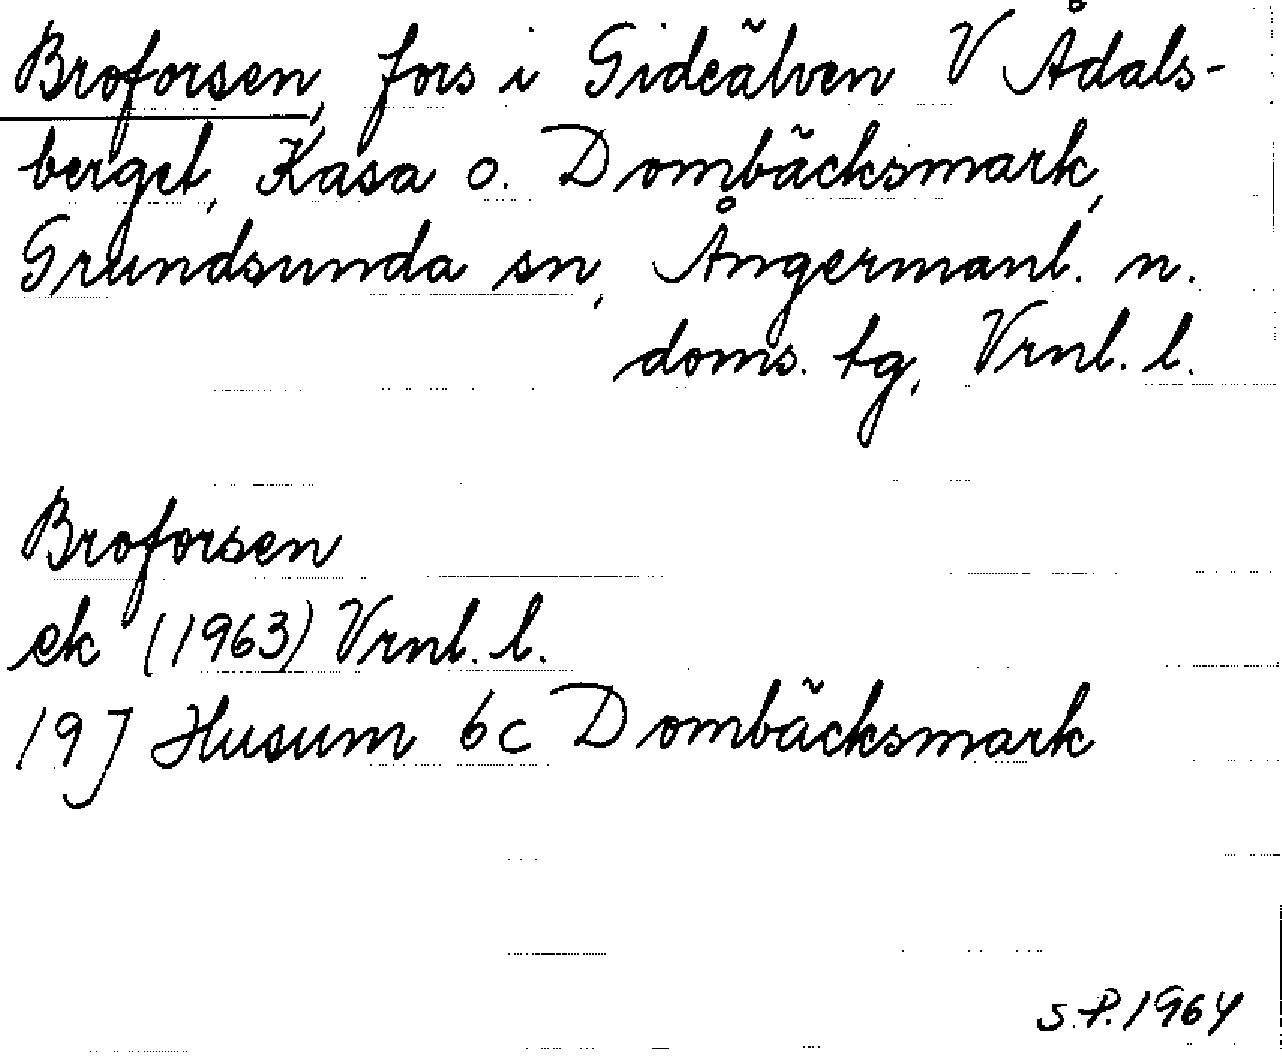 Broforsen, fors i Gideälven V Ådals-
berget, Kasa o. Dombäcksmark,
Grundsunda sn, Ångermanl. n.
doms. tg, Vrnl. l.
Broforsen
ek (1963) Vrnl. l.
19J Husum 6c Dombäcksmark
S.P. 1964